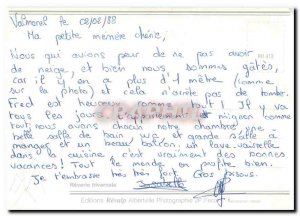 Valmorel le 02/02/88
Ma petite mémère chérie,
Nous qui avions peur de ne pas avoir
de neige, et bien nous sommes gâtés,
car il y en a plus d'1 mètre (comme
sur la photo) et cela n'arrête pas de tomber.
Fred est heureux comme tout ! Il y va
tous les jours. L'appartement est mignon comme
tout nous avons chacun notre chambre une
belle salle de bain, wc, et grande salle à
manger et un beau balcon, un lave vaisselle
dans la cuisine, c'est vraiment des bonnes
vacances ! Tout le monde va très bien.
Je t'embrasse très très fort. Gros bisous.
Rêverie hivernale
Editions Révalp Albertville